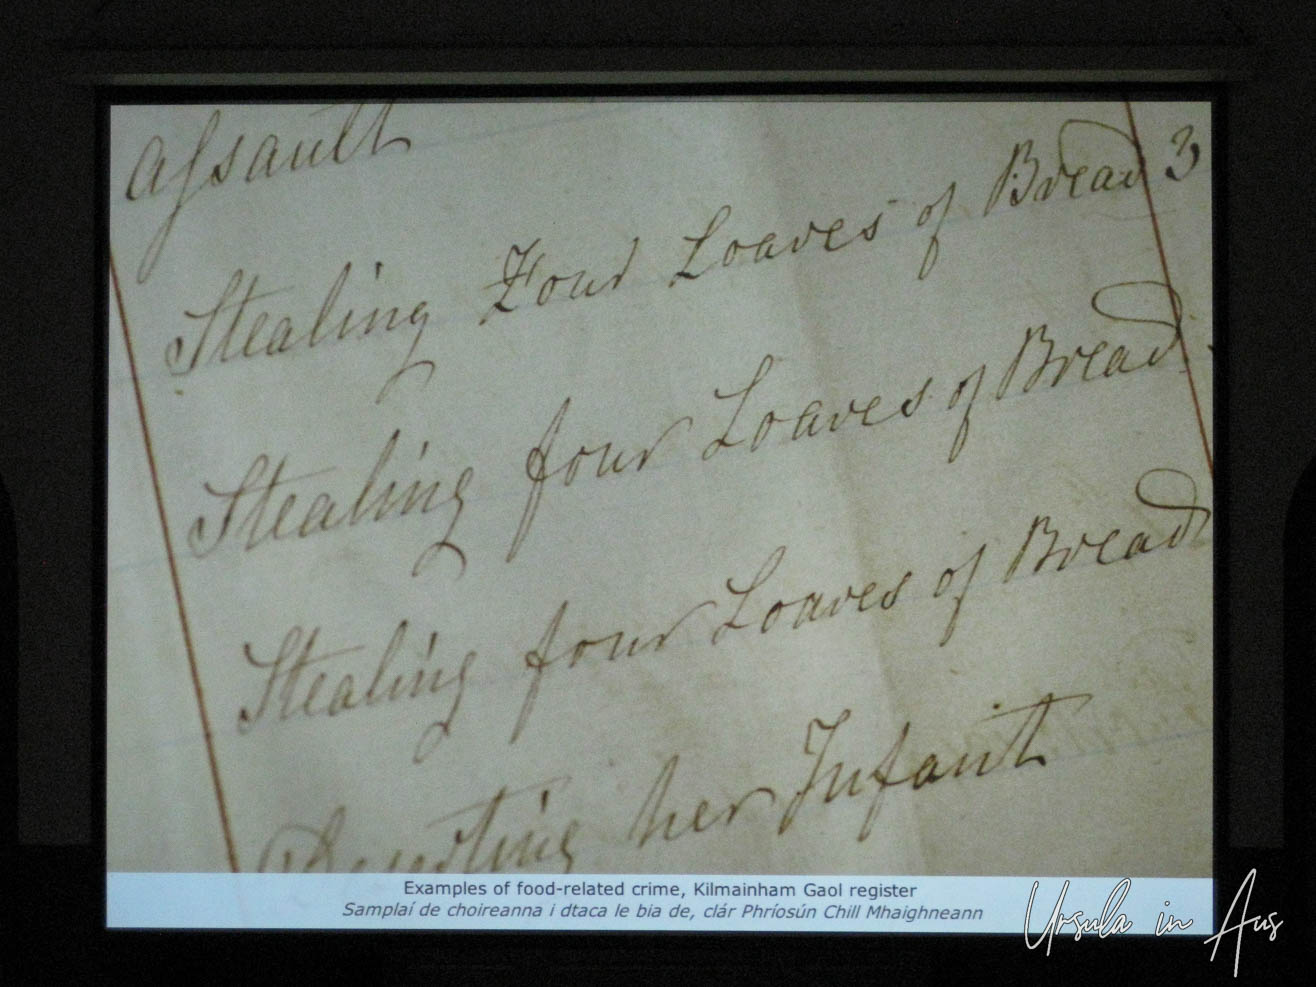 Assault
Stealing Four Loaves of Bread 3
Stealing four Loaves of Bread
Stealing four Loaves of Bread
her Infant
Examples of food-related crime, Kilmainham Gaol register
Samplaí de choireanna i dtaca le bia de, clár Phríosún Chill Mhaighneann
Ursula in Aus